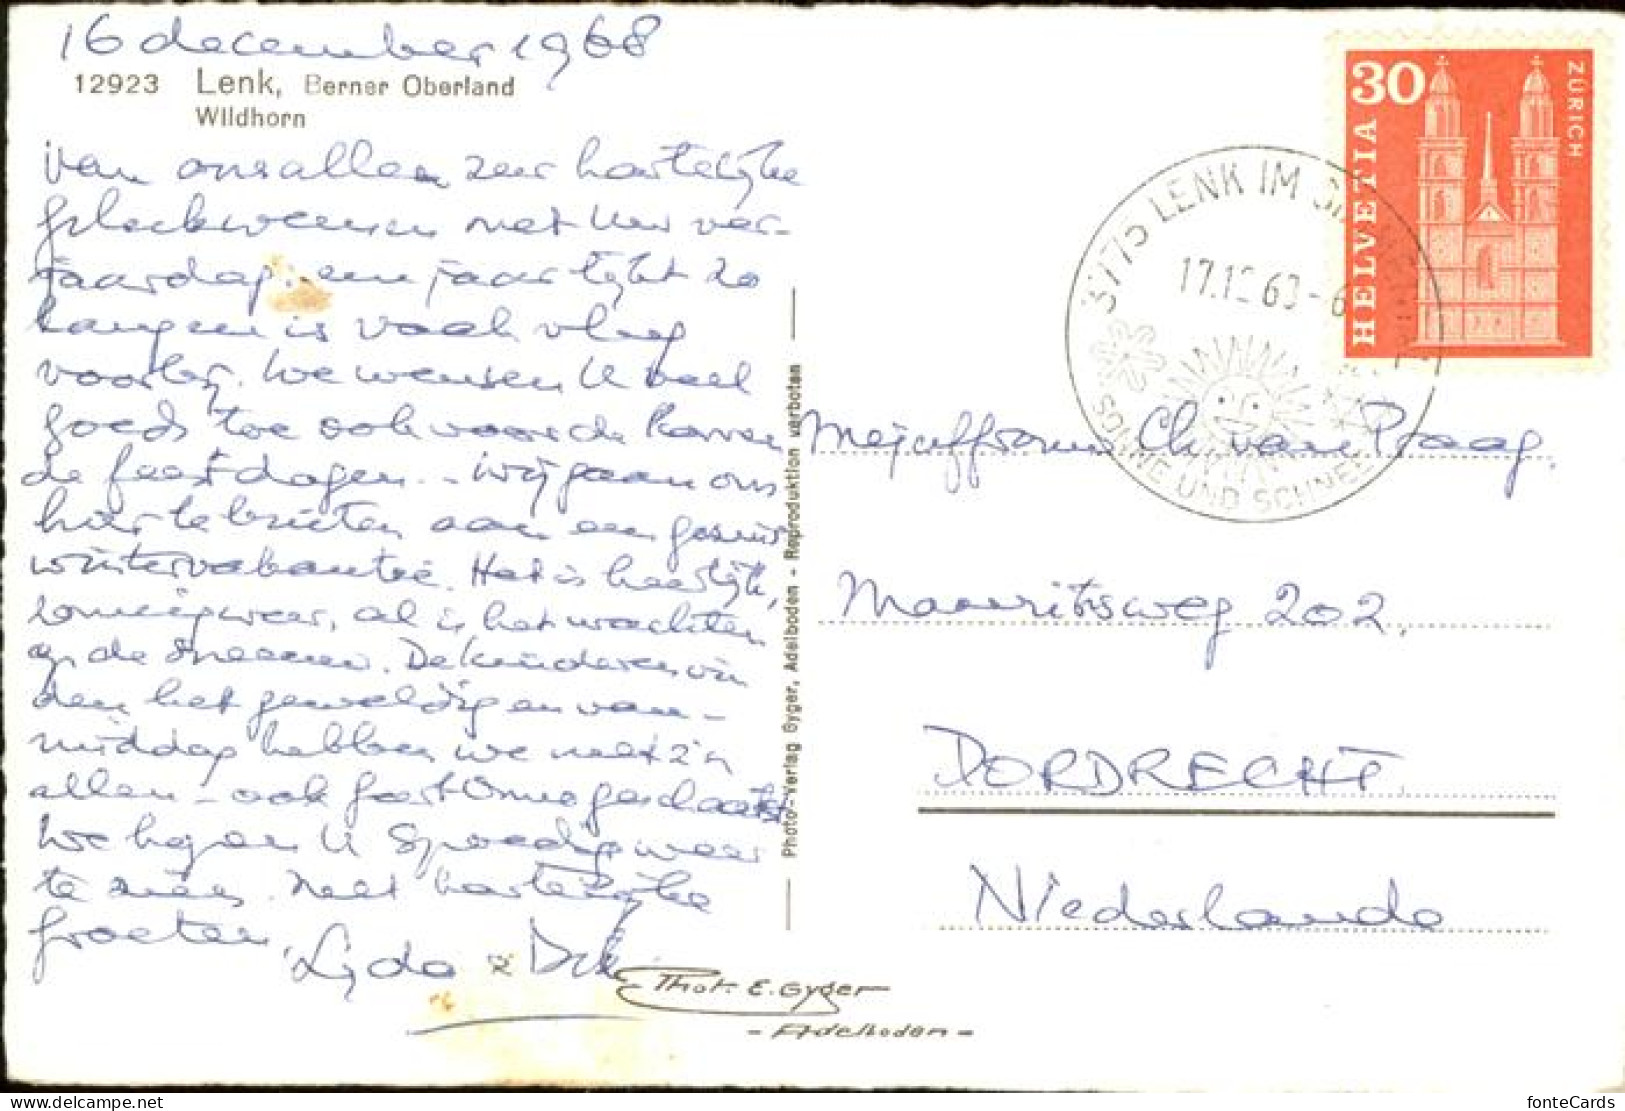 16 december 1968
12923 Lenk, Berner Oberland
Wildhorn
van ons allen zeer hartelijke
gelukwensen met Uw ver-
jaardag. een jaartje
is vaak vlug
voorbij. We wensen U veel
goeds toe ook voor de komen
de feestdagen. Wij gaan ons
hier te buiten aan een
wintervakantie. Het is heerlijk,
zonnig weer, al is het wachten
op de sneeuw. De kinderen vin
den het geweldig en van-
middag hebben we met z'n
allen - ook Oma geschaatst
We hopen U spoedig weer
te zien. Met hartelijke
groeten,
Lyda & Dick
Photo-Verlag Gyger, Adelboden - Reproduktion verboten
Phot. E. Gyger
- Adelboden -
HELVETIA
30
ZÜRICH
3775 LENK IM SIMMENTAL
SONNE UND SCHNEE
Mejuffrouw Ch. van Praag.
Mauritsweg 202.
DORDRECHT.
Niederlande
fonteCards